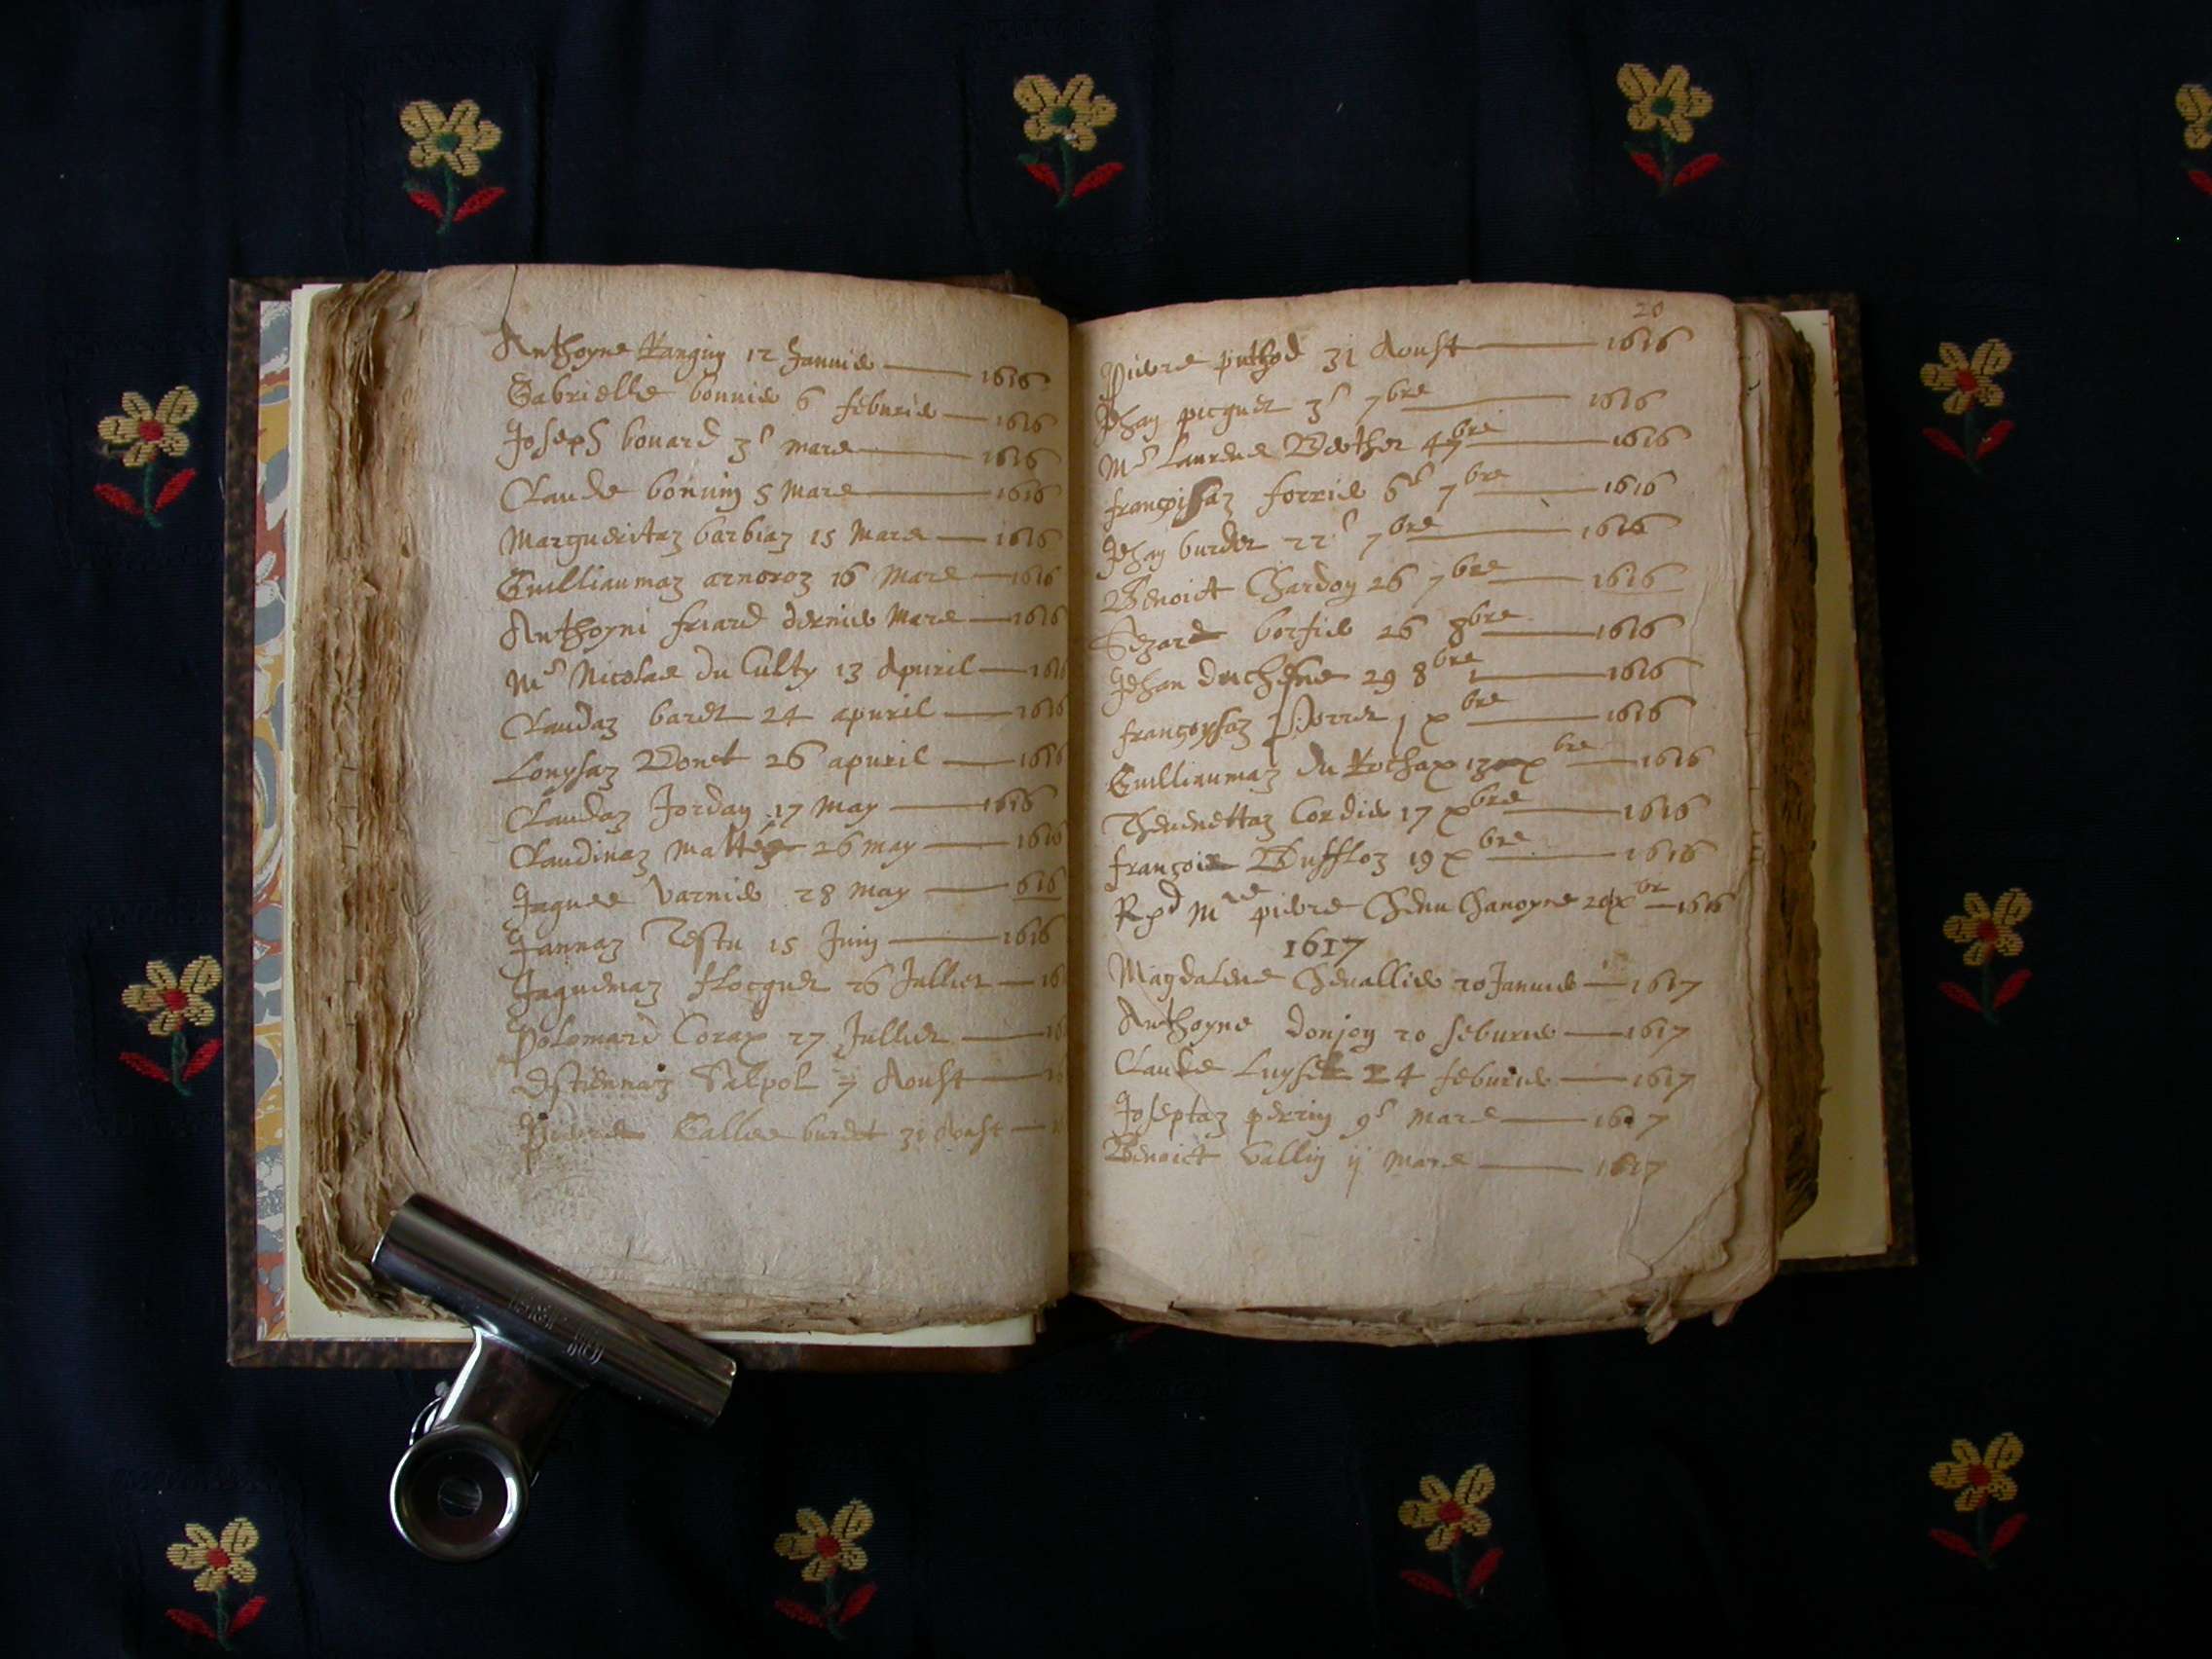 Anthoyne Rangin 12 Januier 1616
Gabrielle bonnier 6 feburier 1616
Joseph bouard 3e mars 1616
Claude bonnin 5 mars 1616
Margueritaz barbiaz 15 mars 1616
Guilliaumaz 16 mars 1616
Anthoyni friard dernier mars 1616
Me Nicolas du Culty 13 Apuril 1616
Claudaz baret 24 apuril 1616
Louysaz Donet 26 apuril 1616
Claudaz Jorday 17 may 1616
Claudinaz 26 may 1616
Jaques Varnier 28 may 616
Jannaz Testu 15 Juin 1616
Jaquemaz flocquet 26 Jullet 16
Polomard Corax 27 Jullet 16
Estiennaz Salpol 7 Aoust 1
Gallie burdet 31 Aoust
20
Pierre puthod 31 Aoust 1616
Jehan picquet 3e 7bre 1616
Me Laurens 4 7bre 1616
françoisaz forrier 6e 7bre 1616
Jehan burdet 22e 7bre 1616
Benoict Chardon 26 7bre 1616
Sezard borfier 26 8bre 1616
Jehan duchesne 29 8bre 1616
françoysaz Porret 1 xbre 1616
Guilliaumaz du Rochax 13 xbre 1616
Theuenettaz Cordier 17 xbre 1616
françois Buffloz 19 xbre 1616
Rd Mre pierre Chenu Chanoyne 20 xbr 1616
1617
Magdalene Cheuallier 20 Januier 1617
Anthoyne donjon 20 feburier 1617
Claude 24 feburier 1617
Joseptaz perrin 9e mars 1617
Benoict Vallin ij mars 1617